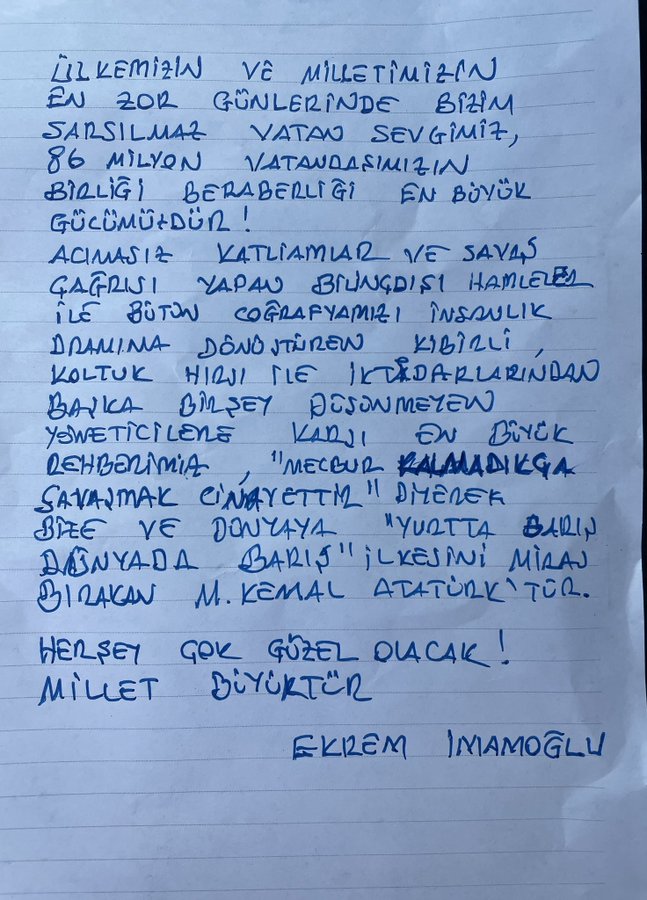 ÜLKEMİZİN VE MİLLETİMİZİN
EN ZOR GÜNLERİNDE BİZİM
SARSILMAZ VATAN SEVGİMİZ,
86 MİLYON VATANDAŞIMIZIN
BİRLİĞİ BERABERLİĞİ EN BÜYÜK
GÜCÜMÜZDÜR!
ACIMASIZ KATLİAMLAR VE SAVAŞ
ÇAĞRISI YAPAN BİLİNÇDIŞI HAMLELER
İLE BÜTÜN COĞRAFYAMIZI İNSANLIK
DRAMINA DÖNÜŞTÜREN KİBİRLİ,
KOLTUK HIRSI İLE İKTİDARLARINDAN
BAŞKA BİRŞEY DÜŞÜNMEYEN
YÖNETİCİLERE KARŞI EN BÜYÜK
REHBERİMİZ, "MECBUR KALMADIKÇA
SAVAŞMAK CİNAYETTİR" DİYEREK
BİZE VE DÜNYAYA "YURTTA BARIŞ
DÜNYADA BARIŞ" İLKESİNİ MİRAS
BIRAKAN M. KEMAL ATATÜRK'TÜR.
HERŞEY ÇOK GÜZEL OLACAK!
MİLLET BÜYÜKTÜR
EKREM İMAMOĞLU